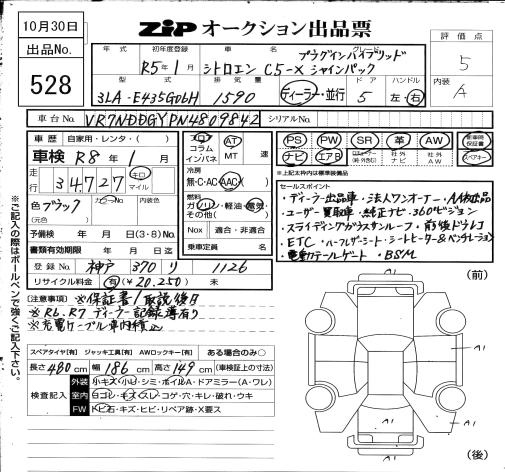 10月30日
ZiP オークション出品票
出品No.
528
評価点
5
内装 A
年式
初年度登録
R5年1月
車名
グレード
シトロエン C5-X
プラグインハイブリッド
シャインパック
型式
3LA-E435G06H
排気量
1590
ディーラー・並行
ドア
5
ハンドル
左・右
車台No.
VR7NDDGYPN4809842
シリアルNo.
車歴 自家用・レンタ・( )
車検 R8年1月
走行
34,727
キロ
マイル
色 ブラック
カラーNo.
内装色
(元色)
予備検有効期限 年 月 日(3・8)No.
書類有効期限 年 月 日迄
登録No. 神戸 370 り 1126
リサイクル料金 有(¥20,250) 未
フロア
コラム
インパネ
AT
MT 速
冷房
無・C・AC・AAC
燃料
ガソリン・軽油・電気・
その他( )
Nox 適合・非適合
乗車定員 名
PS PW SR 革 AW 新車時保証書
ナビ エアB
社外ナビ
社外AW
スペアキー
※上記太枠内は標準装備品
セールスポイント
・ディーラー出品車・法人ワンオーナー・AA初出品
・ユーザー買取車・純正ナビ・360°ビジョン
・スライディングガラスサンルーフ・前後ドラレコ
・ETC・ハーフレザーシート・シートヒーター&ベンチレーション
・電動テールゲート・BSM
[注意事項] ※保証書/取説後日
※R6.R7 ディーラー記録簿有り
※充電ケーブル車内積込
スペアタイヤ[有] ジャッキ工具[有] AWロックキー[有] ある場合のみ○
長さ480cm 幅186cm 高さ149cm (車検証上の寸法)
検査記入
外装 小キズ・小凹・シミ・ボイル・A・ドアミラー(A・ワレ)
室内 白コゲ・キズ・スレ・コゲ・穴・キレ・破れ・ウキ
FW トビ石・キズ・ヒビ・リペア跡・X要ス
(前)
A1
A1
A1
A1
(後)
※ご記入の際はボールペンで強くご記入下さい。